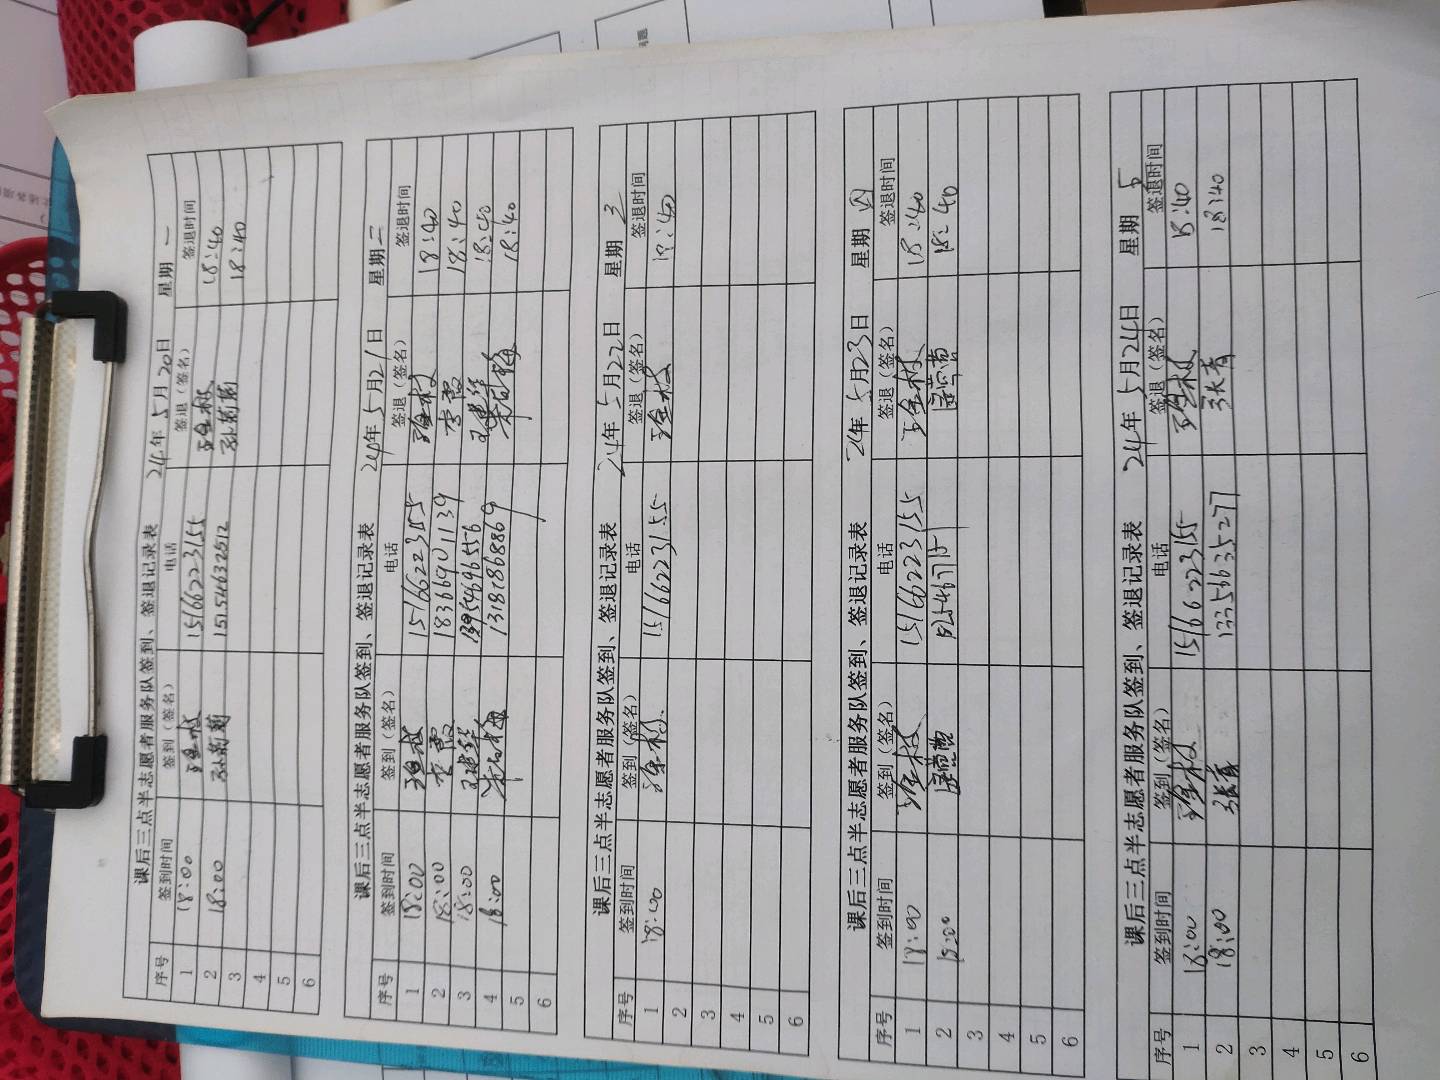 课后三点半志愿者服务队签到、签退记录表 24年5月20日 星期一
序号 签到时间 签到（签名） 电话 签退（签名） 签退时间
1 18:00 15166223155 18:40
2 18:00 孙菊菊 15154632512 孙菊菊 18:40
3
4
5
6
课后三点半志愿者服务队签到、签退记录表 24年5月21日 星期二
序号 签到时间 签到（签名） 电话 签退（签名） 签退时间
1 18:00 15166223155 18:40
2 18:00 李霞 18366901139 李霞 18:40
3 18:00 13954696556 18:40
4 18:00 13181868869 18:40
5
6
课后三点半志愿者服务队签到、签退记录表 24年5月22日 星期三
序号 签到时间 签到（签名） 电话 签退（签名） 签退时间
1 18:00 15166223155 18:40
2
3
4
5
6
课后三点半志愿者服务队签到、签退记录表 24年5月23日 星期四
序号 签到时间 签到（签名） 电话 签退（签名） 签退时间
1 18:00 15166223155 18:40
2 18:00 18:40
3
4
5
6
课后三点半志愿者服务队签到、签退记录表 24年5月24日 星期5
序号 签到时间 签到（签名） 电话 签退（签名） 签退时间
1 18:00 15166223155 18:40
2 18:00 张青 13356635277 张青 18:40
3
4
5
6